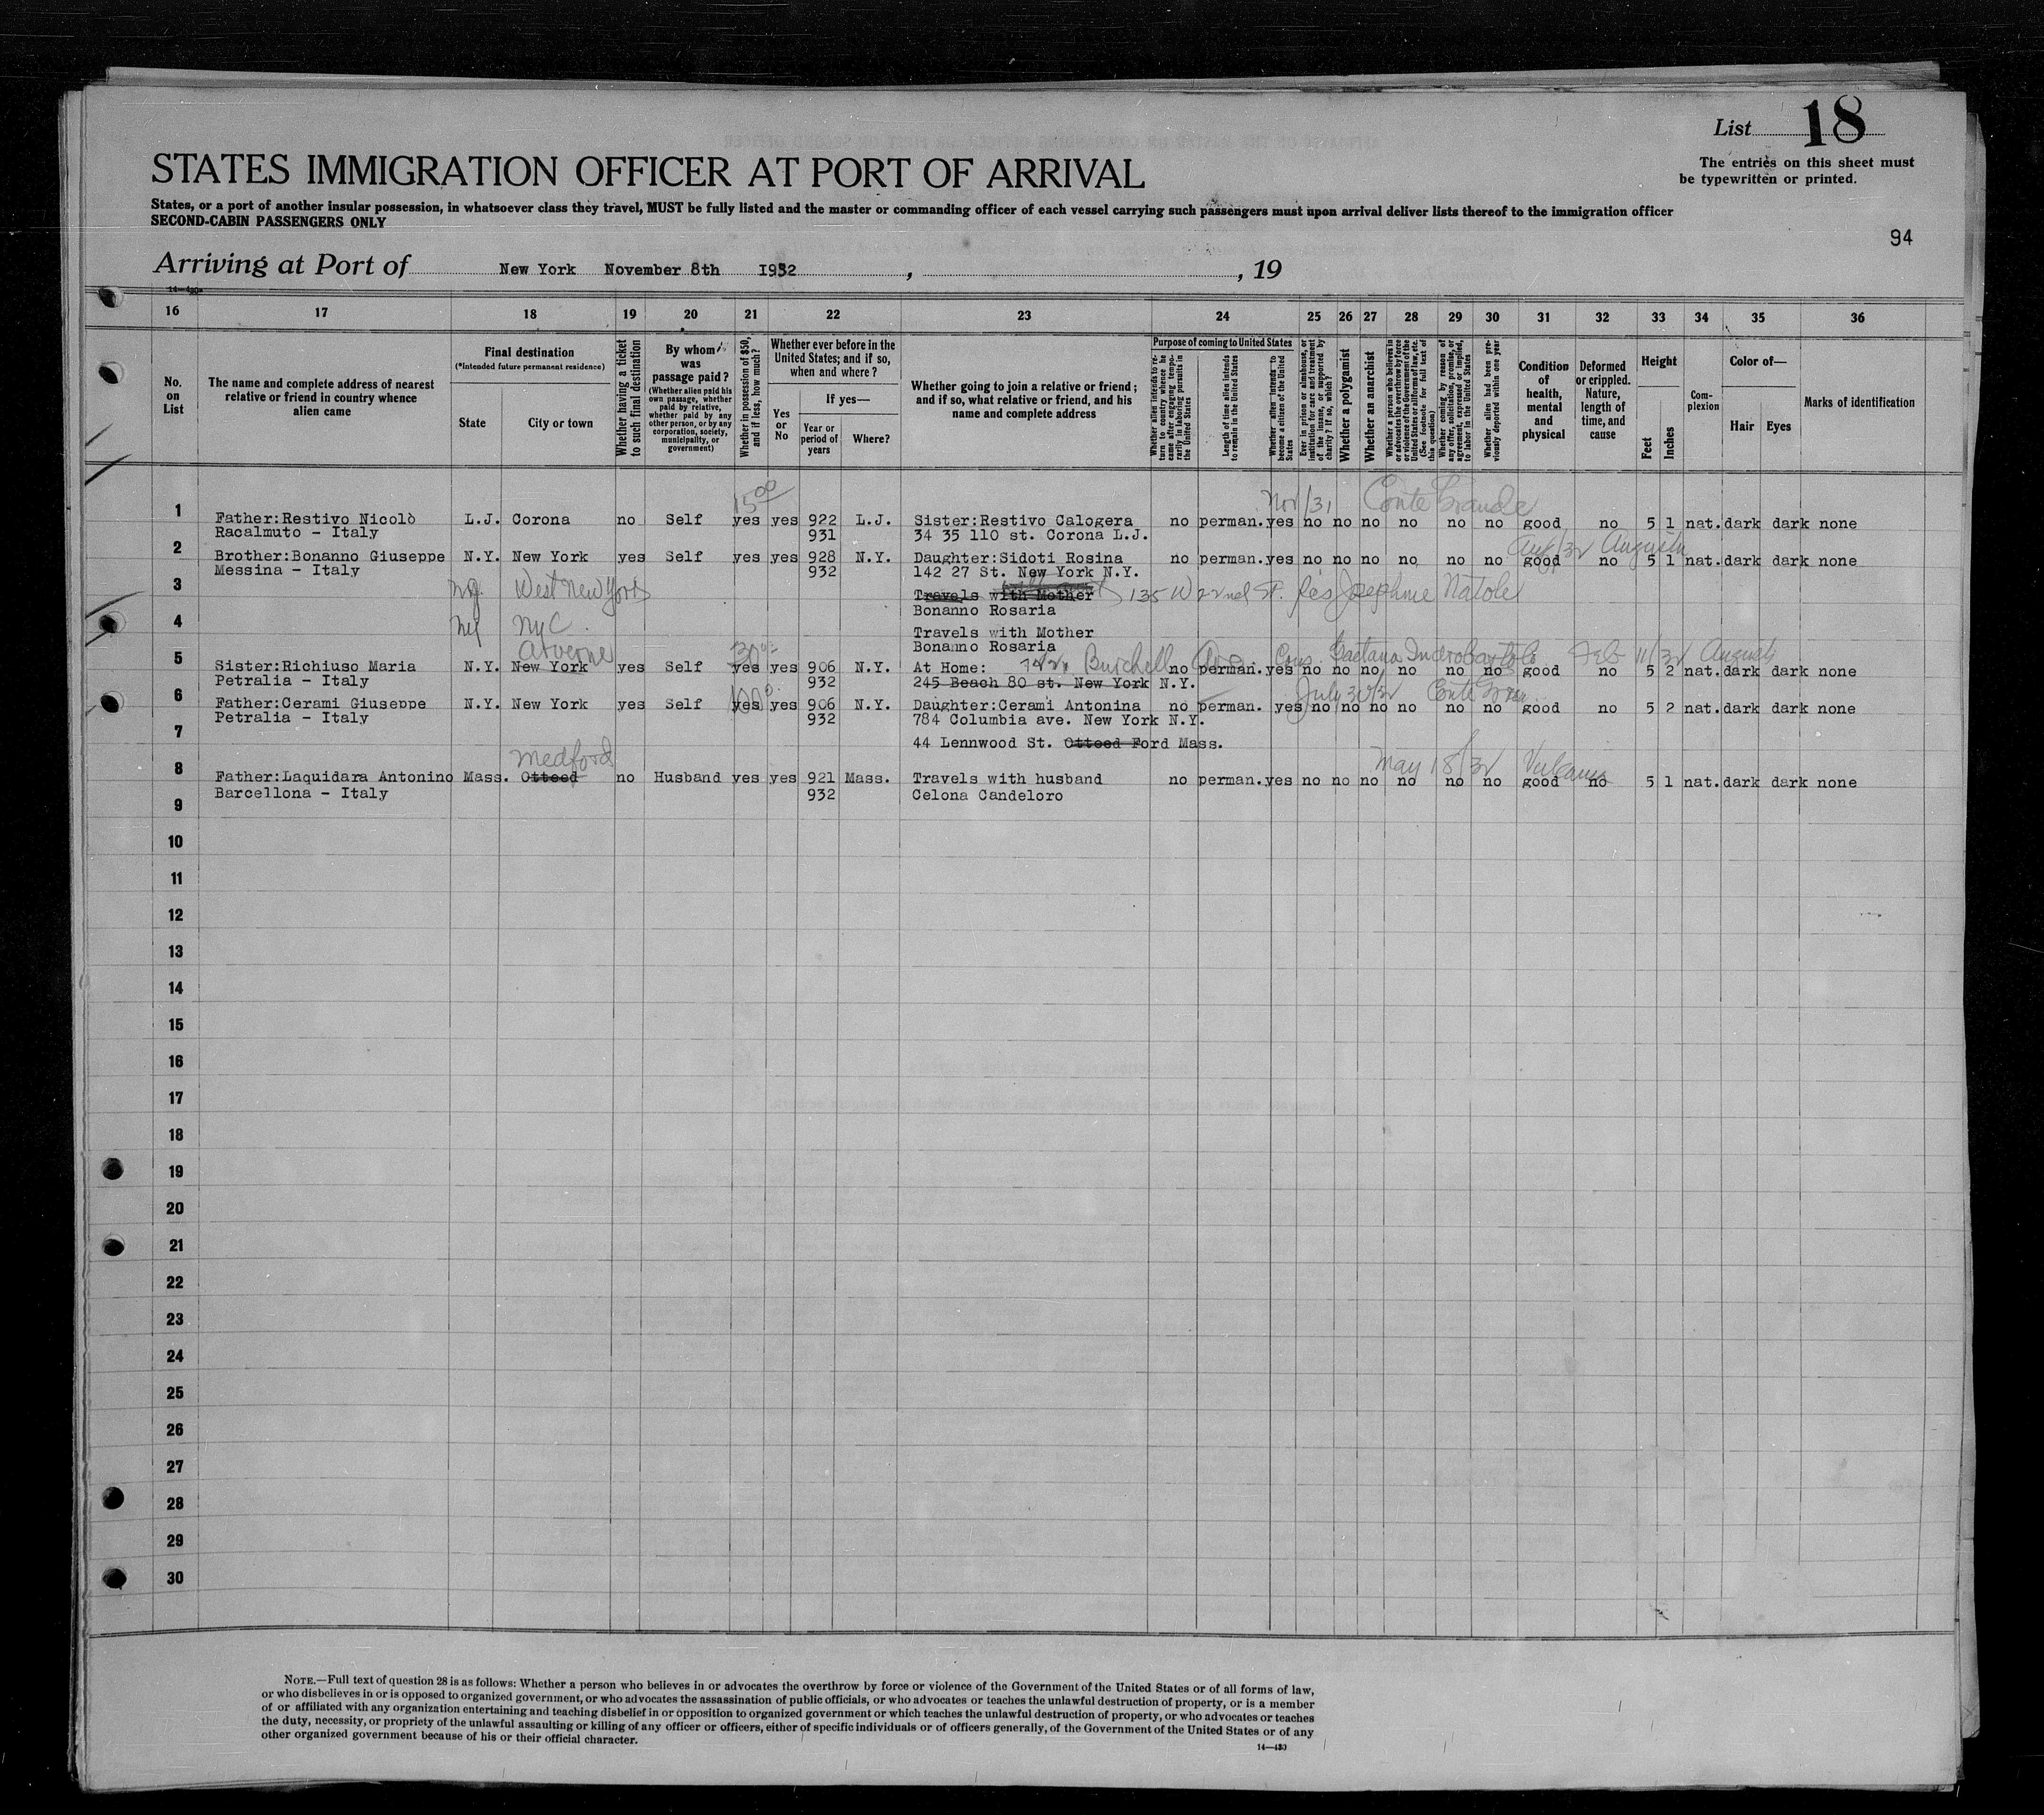 List 18
The entries on this sheet must
be typewritten or printed.
STATES IMMIGRATION OFFICER AT PORT OF ARRIVAL
States, or a port of another insular possession, in whatsoever class they travel, MUST be fully listed and the master or commanding officer of each vessel carrying such passengers must upon arrival deliver lists thereof to the immigration officer
SECOND-CABIN PASSENGERS ONLY
94
Arriving at Port of New York November 8th 1932 , , 19
14—430
16 17 18 19 20 21 22 23 24 25 26 27 28 29 30 31 32 33 34 35 36
No. on List
The name and complete address of nearest relative or friend in country whence alien came
Final destination
(*intended future permanent residence)
State
City or town
Whether having a ticket to such final destination
By whom was passage paid?
(Whether alien paid his own passage, whether paid by relative, whether paid by any other person, or by any corporation, society, municipality, or government)
Whether in possession of $50, and if less, how much?
Whether ever before in the United States; and if so, when and where?
Yes or No
If yes—
Year or period of years
Where?
Whether going to join a relative or friend; and if so, what relative or friend, and his name and complete address
Purpose of coming to United States
Whether alien intends to return to country whence he came after engaging temporarily in laboring pursuits in the United States
Length of time alien intends to remain in the United States
Whether alien intends to become a citizen of the United States
Ever in prison or almshouse, or institution for care and treatment of the insane, or supported by charity? If so, which?
Whether a polygamist
Whether an anarchist
Whether a person who believes in or advocates the overthrow by force or violence of the Government of the United States or all forms of law, etc. (See footnote for full text of this question)
Whether coming by reason of any offer, solicitation, promise, or agreement, expressed or implied, to labor in the United States
Whether alien had been previously deported within one year
Condition of health, mental and physical
Deformed or crippled. Nature, length of time, and cause
Height
Feet
Inches
Complexion
Color of—
Hair
Eyes
Marks of identification
15 00 Nov/31 Conte Grande
1 Father:Restivo Nicolò L.J. Corona no Self yes yes 922 L.J. Sister:Restivo Calogera no perman. yes no no no no no no good no 5 1 nat. dark dark none
Racalmuto - Italy 931 34 35 110 st. Corona L.J.
Aug/32 Augustus
2 Brother:Bonanno Giuseppe N.Y. New York yes Self yes yes 928 N.Y. Daughter:Sidoti Rosina no perman. yes no no no no no no good no 5 1 nat. dark dark none
Messina - Italy 932 142 27 St. New York N.Y.
3 N.J. West New York Travels with Mother 135 W 22nd St. Josephine Natole
Bonanno Rosaria
4 NY NYC. Travels with Mother
Bonanno Rosaria
Arverne 30 00 Burchell Ave. Gaetana Feb 11/32 Augustus
5 Sister:Richiuso Maria N.Y. New York yes Self yes yes 906 N.Y. At Home: no perman. yes no no no no no no good no 5 2 nat. dark dark none
Petralia - Italy 932 245 Beach 80 st. New York N.Y.
July 30/32 Conte Gran
6 Father:Cerami Giuseppe N.Y. New York yes Self yes yes 906 N.Y. Daughter:Cerami Antonina no perman. yes no no no no no no good no 5 2 nat. dark dark none
Petralia - Italy 932 784 Columbia ave. New York N.Y.
7 44 Lennwood St. Otteed Ford Mass.
Medford May 18/32 Vulcania
8 Father:Laquidara Antonino Mass. Otteed no Husband yes yes 921 Mass. Travels with husband no perman. yes no no no no no no good no 5 1 nat. dark dark none
Barcellona - Italy 932 Celona Candeloro
9
10
11
12
13
14
15
16
17
18
19
20
21
22
23
24
25
26
27
28
29
30
NOTE.—Full text of question 28 is as follows: Whether a person who believes in or advocates the overthrow by force or violence of the Government of the United States or of all forms of law,
or who disbelieves in or is opposed to organized government, or who advocates the assassination of public officials, or who advocates or teaches the unlawful destruction of property, or is a member
of or affiliated with any organization entertaining and teaching disbelief in or opposition to organized government or which teaches the unlawful destruction of property, or who advocates or teaches
the duty, necessity, or propriety of the unlawful assaulting or killing of any officer or officers, either of specific individuals or of officers generally, of the Government of the United States or of any
other organized government because of his or their official character.
14—430